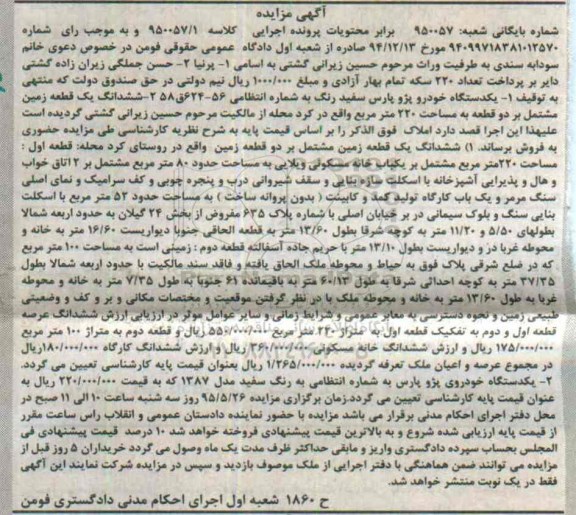 آگهی مزایده
شماره بایگانی شعبه: ۹۵۰۰۵۷ برابر محتویات پرونده اجرایی کلاسه ۹۵۰۰۵۷/۱ و به موجب رای شماره
۹۴۰۹۹۷۱۸۳۸۱۰۱۲۵۷۰ مورخ ۹۴/۱۲/۱۳ صادره از شعبه اول دادگاه عمومی حقوقی فومن در خصوص دعوی خانم
سودابه سندی به طرفیت وراث مرحوم حسین زیرانی گشتی به اسامی ۱- پرنیا ۲- حسن جملگی زیران زاده گشتی
دایر بر پرداخت تعداد ۲۲۰ سکه تمام بهار آزادی و مبلغ ۱۰۰۰/۰۰۰ ریال نیم دولتی در حق صندوق دولت که منتهی
به توقیف ۱- یکدستگاه خودرو پژو پارس سفید رنگ به شماره انتظامی ۵۶-۶۲۴ق۵۸ ۲-ششدانگ یک قطعه زمین
مشتمل بر دو قطعه به مساحت ۲۲۰ متر مربع واقع در کرد محله از مالکیت مرحوم حسین زیرانی گشتی گردیده است
علیهذا این اجرا قصد دارد املاک فوق الذکر را بر اساس قیمت پایه به شرح نظریه کارشناسی طی مزایده حضوری
به فروش برساند. ۱) ششدانگ یک قطعه زمین مشتمل بر دو قطعه زمین واقع در روستای کرد محله: قطعه اول :
مساحت ۲۲۰متر مربع مشتمل بر یکباب خانه مسکونی ویلایی به مساحت حدود ۸۰ متر مربع مشتمل بر ۲اتاق خواب
و هال و پذیرایی آشپزخانه با اسکلت سازه بنایی و سقف شیروانی درب و پنجره چوبی و کف سرامیک و نمای اصلی
سنگ مرمر و یک باب کارگاه تولید کمد و کابینت ( بدون پروانه ساخت ) به مساحت حدود ۵۲ متر مربع با اسکلت
بنایی سنگ و بلوک سیمانی در بر خیابان اصلی با شماره پلاک ۶۳۵ مفروض از بخش ۲۴ گیلان به حدود اربعه شمالا
بطولهای ۵/۵۰ و ۱۱/۲۰ متر به کوچه شرقا بطول ۱۳/۶۰ متر به قطعه الحاقی جنوبا دیواریست ۱۶/۶۰ متر به خانه و
محوطه غربا در و دیواریست بطول ۱۳/۱۰ متر با حریم جاده آسفالته قطعه دوم : زمینی است به مساحت ۱۰۰ متر مربع
که در ضلع شرقی پلاک فوق به حیاط و محوطه ملک الحاق یافته و فاقد سند مالکیت با حدود اربعه شمالا بطول
۳۷/۳۵ متر به کوچه احداثی شرقا به طول ۶۰/۱۳ متر به باقیمانده ۶۱ جنوبا به طول ۷/۳۵ متر به خانه و محوطه
غربا به طول ۱۳/۶۰ متر به خانه و محوطه ملک با در نظر گرفتن موقعیت و مختصات مکانی و بر و کف و وضعیتی
طبیعی زمین و نحوه دسترسی به معابر عمومی و شرایط زمانی و سایر عوامل موثر در ارزیابی ارزش ششدانگ عرصه
قطعه اول و دوم به تفکیک قطعه اول به متراژ ۲۲۰ متر مربع ۵۵۰/۰۰۰/۰۰۰ ریال و قطعه دوم به متراژ ۱۰۰ متر مربع
۱۷۵/۰۰۰/۰۰۰ ریال و ارزش ششدانگ خانه مسکونی ۳۶۰/۰۰۰/۰۰۰ ریال و ارزش ششدانگ کارگاه ۱۸۰/۰۰۰/۰۰۰ریال
در مجموع عرصه و اعیان ملک تعرفه گردیده ۱/۲۶۵/۰۰۰/۰۰۰ ریال بعنوان قیمت پایه کارشناسی تعیین می گردد.
۲- یکدستگاه خودروی پژو پارس به شماره انتظامی به رنگ سفید مدل ۱۳۸۷ که به قیمت ۲۲۰/۰۰۰/۰۰۰ ریال به
عنوان قیمت پایه کارشناسی تعیین می گردد.زمان برگزاری مزایده ۹۵/۵/۲۶ روز سه شنبه ساعت ۱۰ الی ۱۱ صبح در
محل دفتر اجرای احکام مدنی برقرار می باشد مزایده با حضور نماینده دادستان عمومی و انقلاب راس ساعت مقرر
از قیمت پایه ارزیابی شده شروع و به بالاترین قیمت پیشنهادی فروخته خواهد شد ۱۰ درصد قیمت پیشنهادی فی
المجلس بحساب سپرده دادگستری واریز و مابقی حداکثر ظرف مدت یک ماه وصول می گردد خریداران ۵ روز قبل از
مزایده می توانند ضمن هماهنگی با دفتر اجرایی از ملک موصوف بازدید و سپس در مزایده شرکت نمایند این آگهی
فقط در یک نوبت منتشر خواهد شد.
ح ۱۸۶۰ شعبه اول اجرای احکام مدنی دادگستری فومن